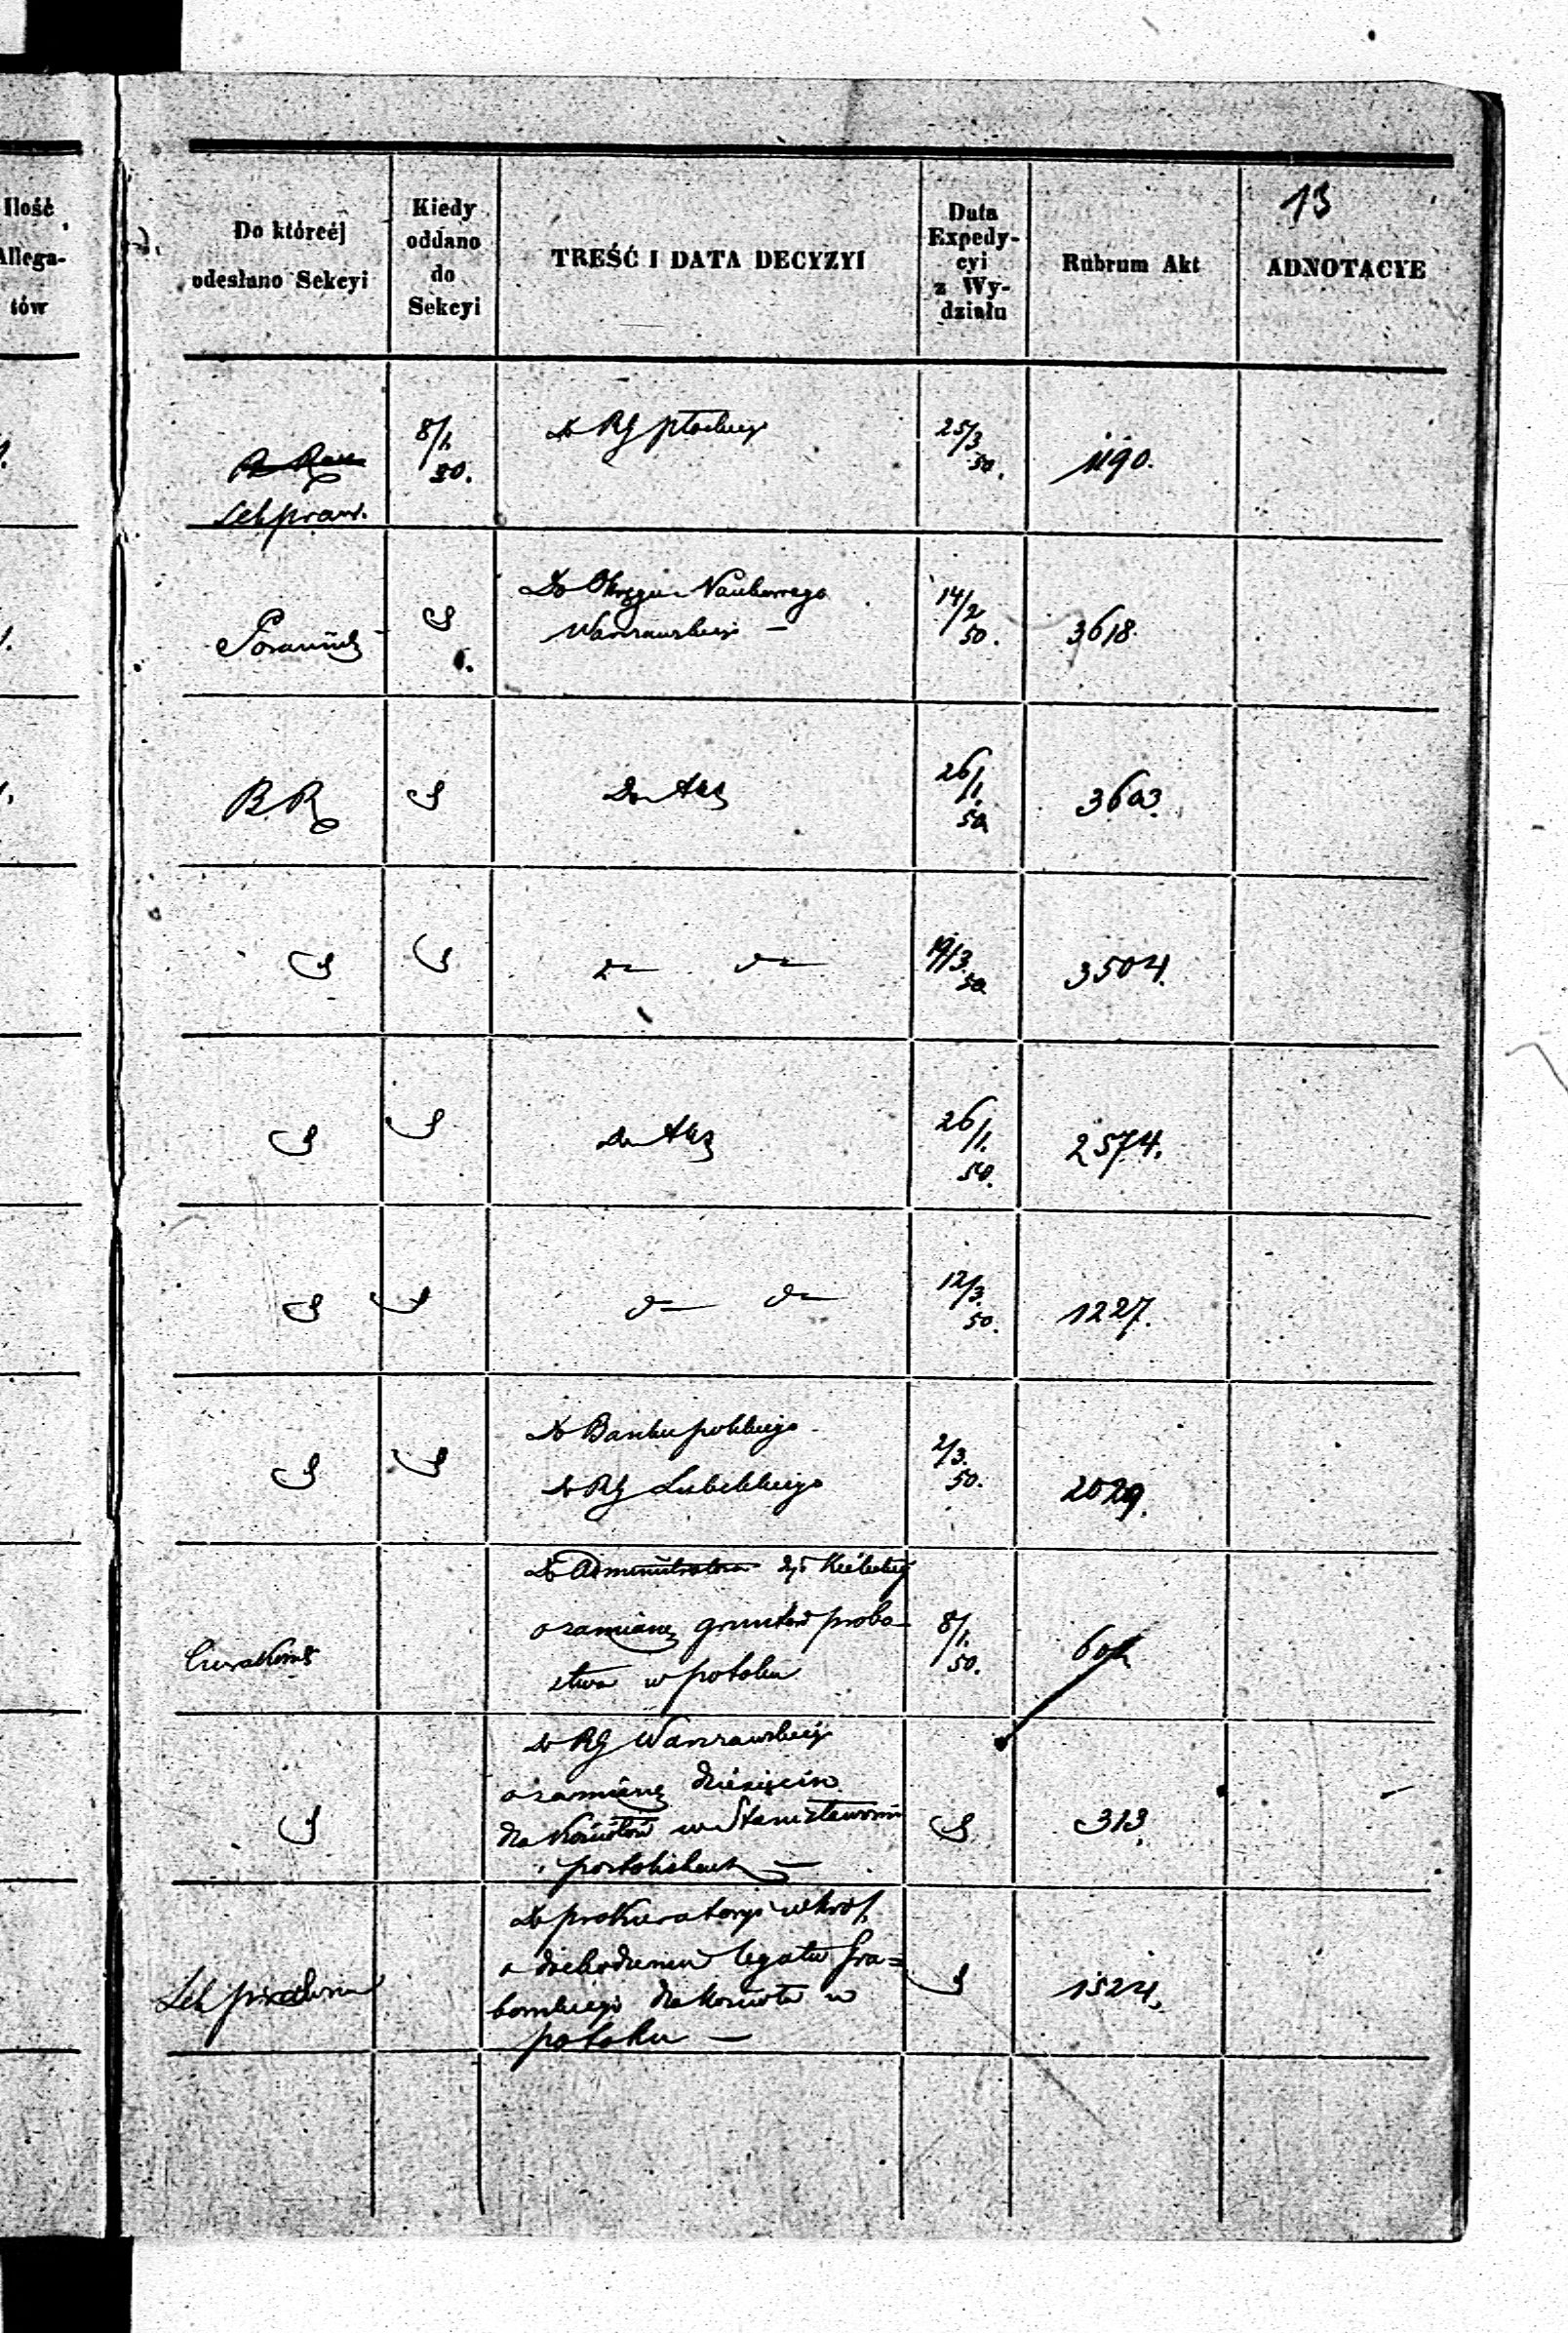 13
Ilość
Allega-
tów
Do któreéj
odesłano Sekcyi
Kiedy
oddano
do
Sekcyi
TREŚĆ I DATA DECYZYI
Data
Expedy-
cyi
z Wy-
działu
Rubrum Akt
ADNOTACYE
Sek praw.
8/1
50.
Do RG płockiego
25/3
50.
1190.
Do Okręgu Naukowego
Warszawskiego —
14/2
50.
3618.
B. R.
Do Akt
26/1.
50
3603.
19/3.
50
3504.
Do Akt
26/1.
50.
2574.
12/3.
50.
1227.
Do Banku polskiego
Do RG Lubelskiego
2/3.
50.
2029.
Do Administratora Kieleckiej
o zamianę gruntów probo-
stwa w potoku
8/1.
50.
Do RG Warszawskiego
o zamianę dziesięcin
dla Kościołów w Stanisławowie
313.
Do prokuratoryi w król.
legatu Gra-
bowskiego dla kościoła w
potoku —
1524.